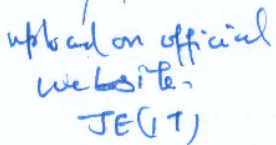 upload on official
website.
JE(IT)